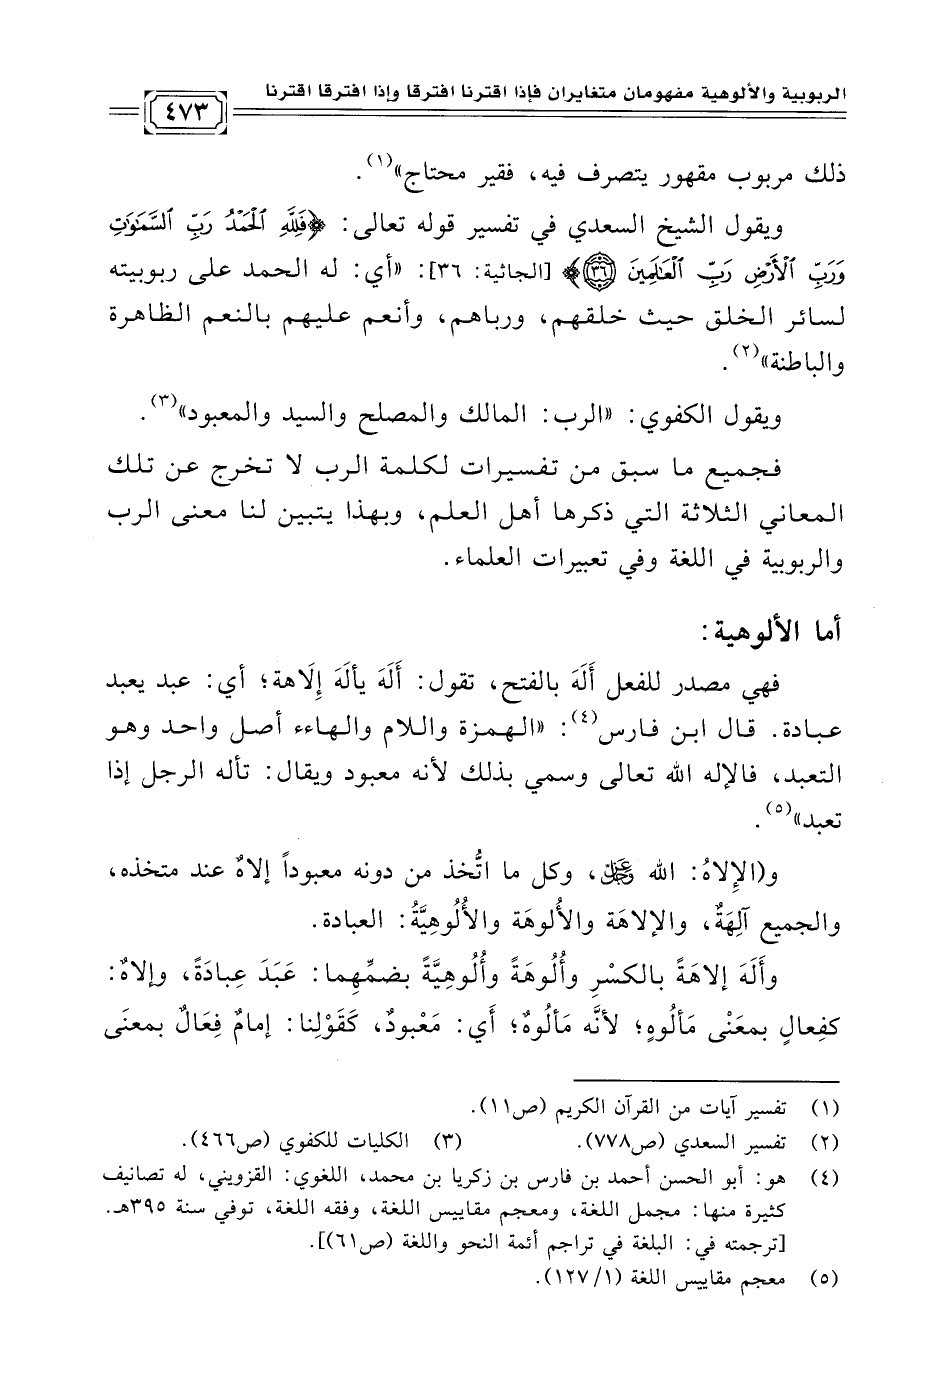 الربوبية والألوهية مفهومان متغايران فإذا اقترنا افترقا وإذا افترقا اقترنا
٤٧٣
ذلك مربوب مقهور يتصرف فيه، فقير محتاج»(١).
ويقول الشيخ السعدي في تفسير قوله تعالى: ﴿فَلِلَّهِ الْحَمْدُ رَبِّ السَّمَٰوَٰتِ
وَرَبِّ الْأَرْضِ رَبِّ الْعَٰلَمِينَ ٣٦﴾ [الجاثية: ٣٦]: «أي: له الحمد على ربوبيته
لسائر الخلق حيث خلقهم، ورباهم، وأنعم عليهم بالنعم الظاهرة
والباطنة»(٢).
ويقول الكفوي: «الرب: المالك والمصلح والسيد والمعبود»(٣).
فجميع ما سبق من تفسيرات لكلمة الرب لا تخرج عن تلك
المعاني الثلاثة التي ذكرها أهل العلم، وبهذا يتبين لنا معنى الرب
والربوبية في اللغة وفي تعبيرات العلماء.
أما الألوهية:
فهي مصدر للفعل أَلَهَ بالفتح، تقول: أَلَهَ يألَهَ إِلَاهة؛ أي: عبد يعبد
عبادة. قال ابن فارس(٤): «الهمزة واللام والهاء أصل واحد وهو
التعبد، فالإله الله تعالى وسمي بذلك لأنه معبود ويقال: تأله الرجل إذا
تعبد»(٥).
و(الإِلاهُ: الله ﷻ، وكل ما اتُّخذ من دونه معبوداً إلاهٌ عند متخذه،
والجميع آلِهَةٌ، والإلاهَة والأُلوهَة والأُلُوهِيَّةُ: العبادة.
وأَلَهَ إلاهَةً بالكسْرِ وأُلُوهَةً وأُلُوهِيَّةً بضمِّهِما: عَبَدَ عِبادَةً، وإلاهٌ:
كفِعالٍ بمعَنْى مَألُوهٍ؛ لأنَّه مَألُوهٌ؛ أي: مَعْبودٌ، كَقَوْلِنا: إمامٌ فِعَالٌ بمعنَى
(١) تفسير آيات من القرآن الكريم (ص١١).
(٢) تفسير السعدي (ص٧٧٨). (٣) الكليات للكفوي (ص٤٦٦).
(٤) هو: أبو الحسن أحمد بن فارس بن زكريا بن محمد، اللغوي: القزويني، له تصانيف
كثيرة منها: مجمل اللغة، ومعجم مقاييس اللغة، وفقه اللغة، توفي سنة ٣٩٥هـ.
[ترجمته في: البلغة في تراجم أئمة النحو واللغة (ص٦١)].
(٥) معجم مقاييس اللغة (١/ ١٢٧).